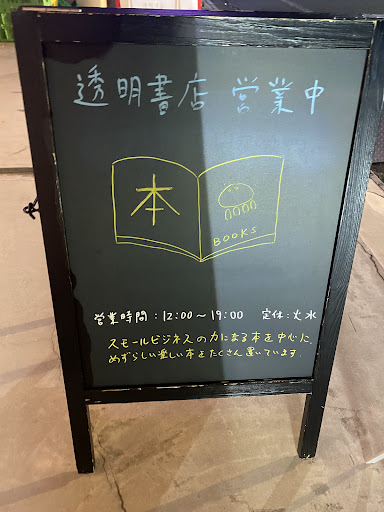 透明書店 営業中
本
BOOKS
営業時間:12:00～19:00 定休:火水
スモールビジネスの力になる本を中心に、
めずらしい楽しい本をたくさん置いています。